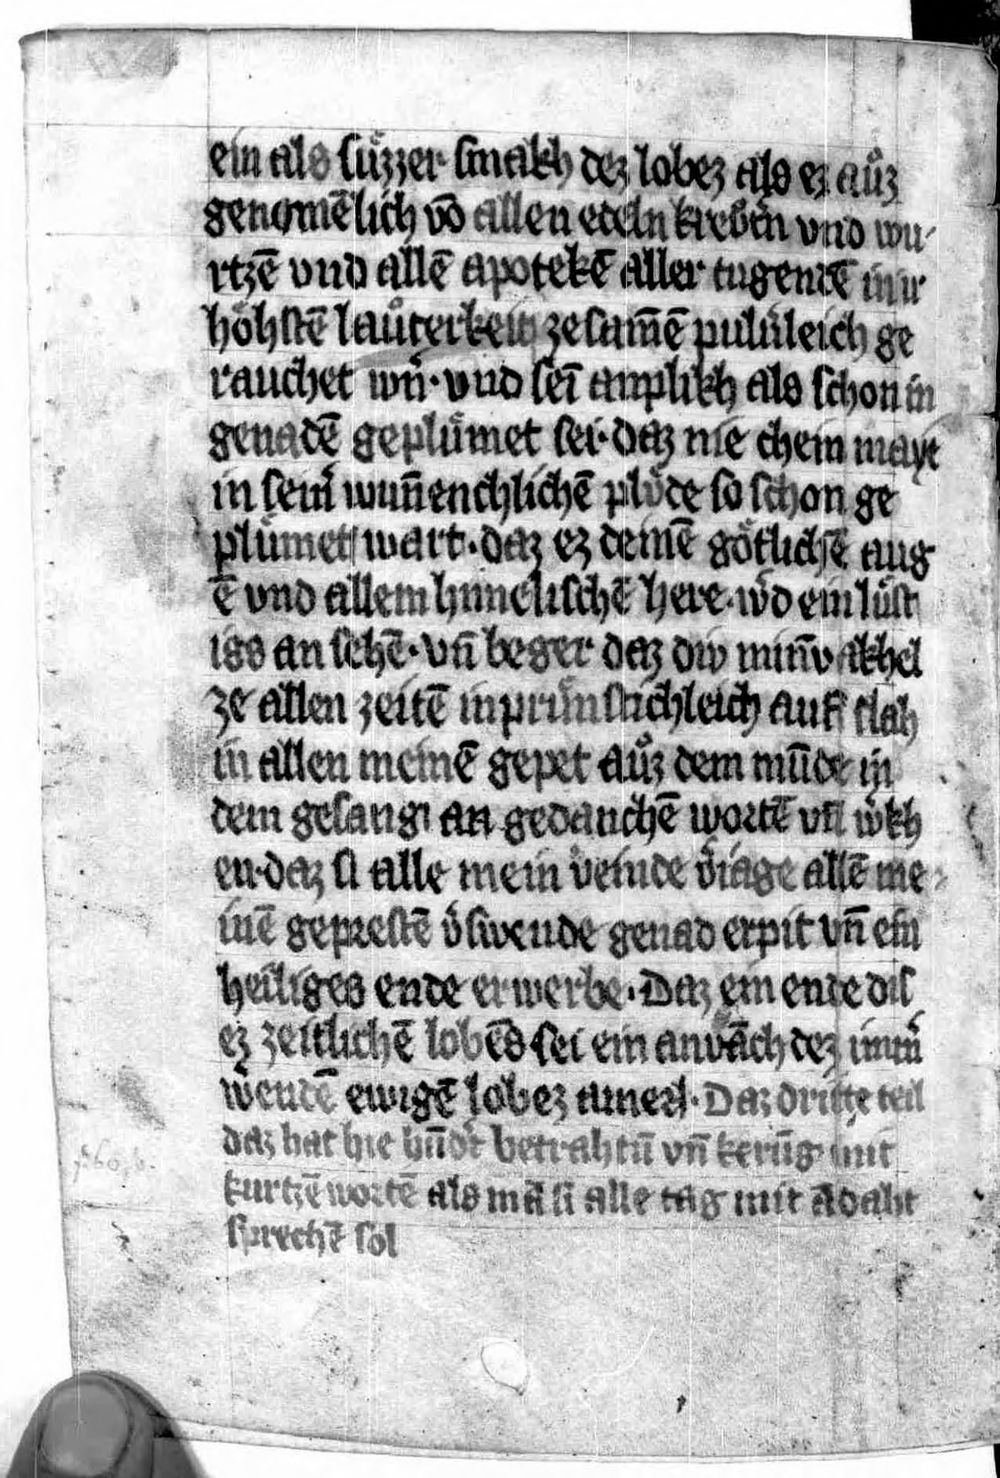 ein als süzzer smakh dez lobez als ez aůz
genomēlich vō allen edeln krevtn vnd wu-
rtzē vnd allē apotekē aller tugendē in ir
höhstē lauterkeit zesamē pululeich ge
rauchet wn̄· vnd sei anplikh als schon in
genadē geplümet sei· daz nie chein mayt
in sein̄ wun̄enchlichē plöde so schon ge
plümet wart· daz ez deinē götlichē aug
ē vnd allem himelischē here· wd ein lüst
igs an sehē· vn̄ beger daz div min̄v akhel
ze allen zeitē inprünstichleich auff slah
in allen meinē gepet auz dem mūde in
dem gesang an gedanchē wortē vn̄ wkh
en· daz si alle mein veinde v̄iage allē me-
inē geprestē v̄swende genad erpit vn̄ ein
heiliges ende erwerbe· Daz ein ende dis
ez zeitlichē lobēs sei ein anvāch dez im̄
wendē ewigē lobez amen· Daz dritte teil
daz hat hie hūdt betrahtū vn̄ kerūg mit
kurtzē wortē als mā si alle tag mit ādaht
sprechē sol